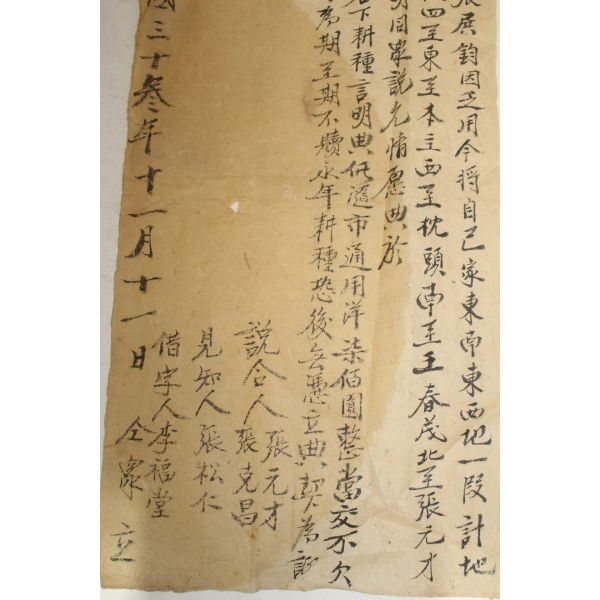 張展鈞因乏用今將自己家東南東西地一段計地
四至東至本主西至枕頭南至王春茂北至張元才
明同衆説允情愿典於
名下耕種言明典代隨市通用洋柒佰圓整當交不欠
為期至期不贖永年耕種恐後無憑立典契為証
説合人張元才
張克昌
見知人張松仁
借字人李福堂
國三十叁年十一月十一日 仝衆立